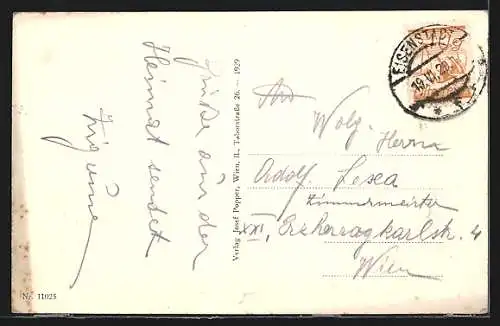 Grüße aus der
Heimat sendet
EISENSTADT
An
Wolg. Herrn
Adolf Lesea
Zimmermeister
XXI, Erzherzogkarlstr. 4
Wien
Verlag Josef Popper, Wien, II., Taborstraße 26. — 1929
Nr. 11025